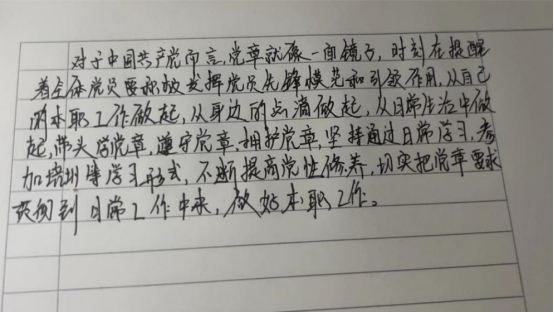 对于中国共产党而言,党章就像一面镜子,时刻在提醒
着全体党员要积极发挥党员先锋模范和引领作用,从自己
的本职工作做起,从身边的点滴做起,从日常生活中做
起,带头学党章,遵守党章,拥护党章,坚持通过日常学习,参
加培训等学习形式,不断提高党性修养,切实把党章要求
贯彻到日常工作中来,做好本职工作。